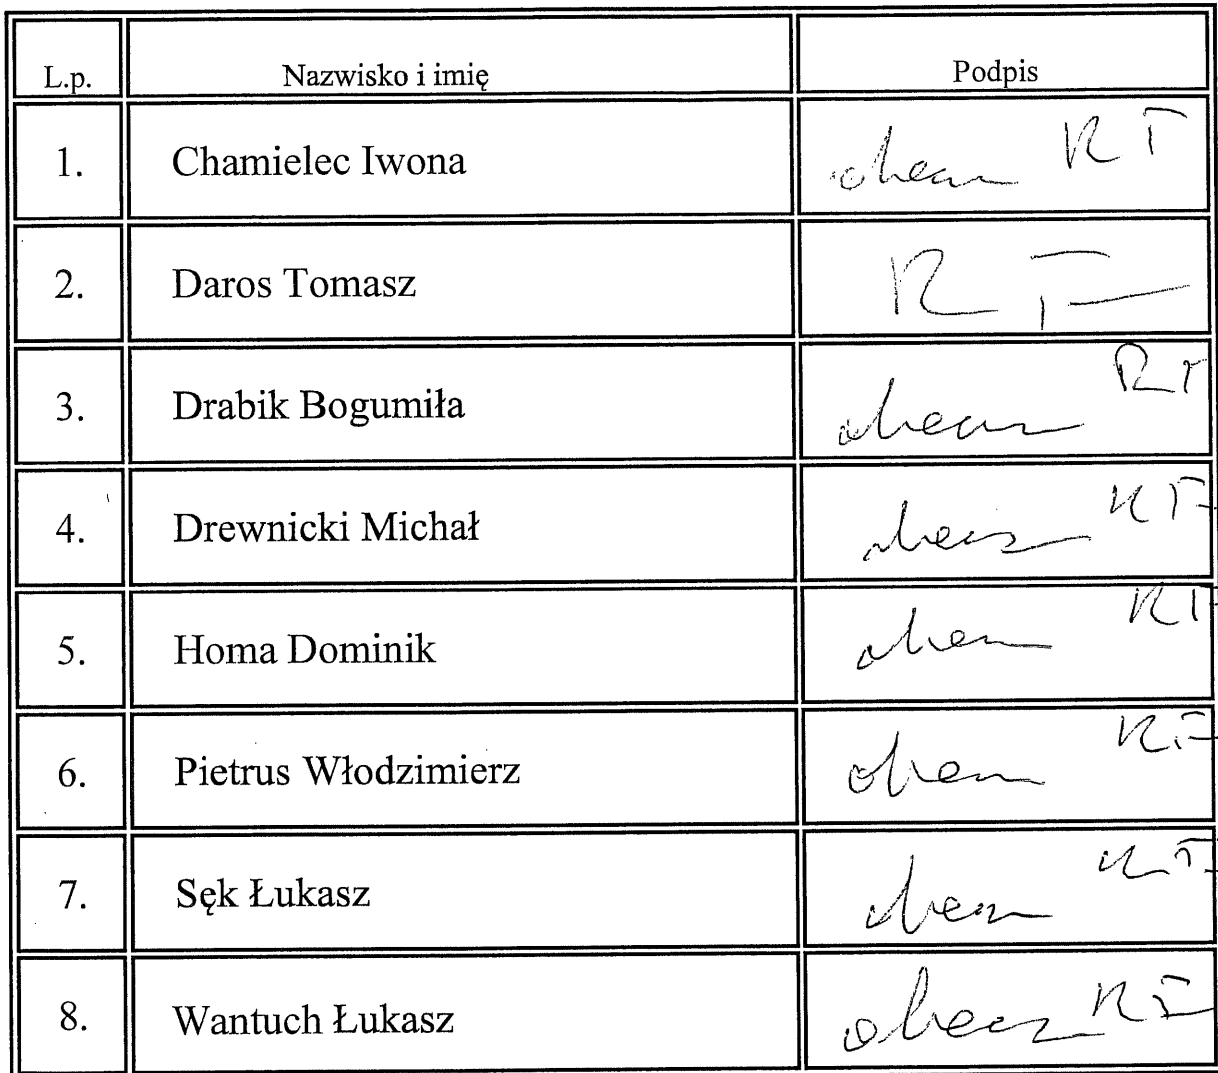 L.p. Nazwisko i imię Podpis
1. Chamielec Iwona obecn RT
2. Daros Tomasz RT
3. Drabik Bogumiła obecn RT
4. Drewnicki Michał RT
5. Homa Dominik RT
6. Pietrus Włodzimierz RT
7. Sęk Łukasz RT
8. Wantuch Łukasz RT